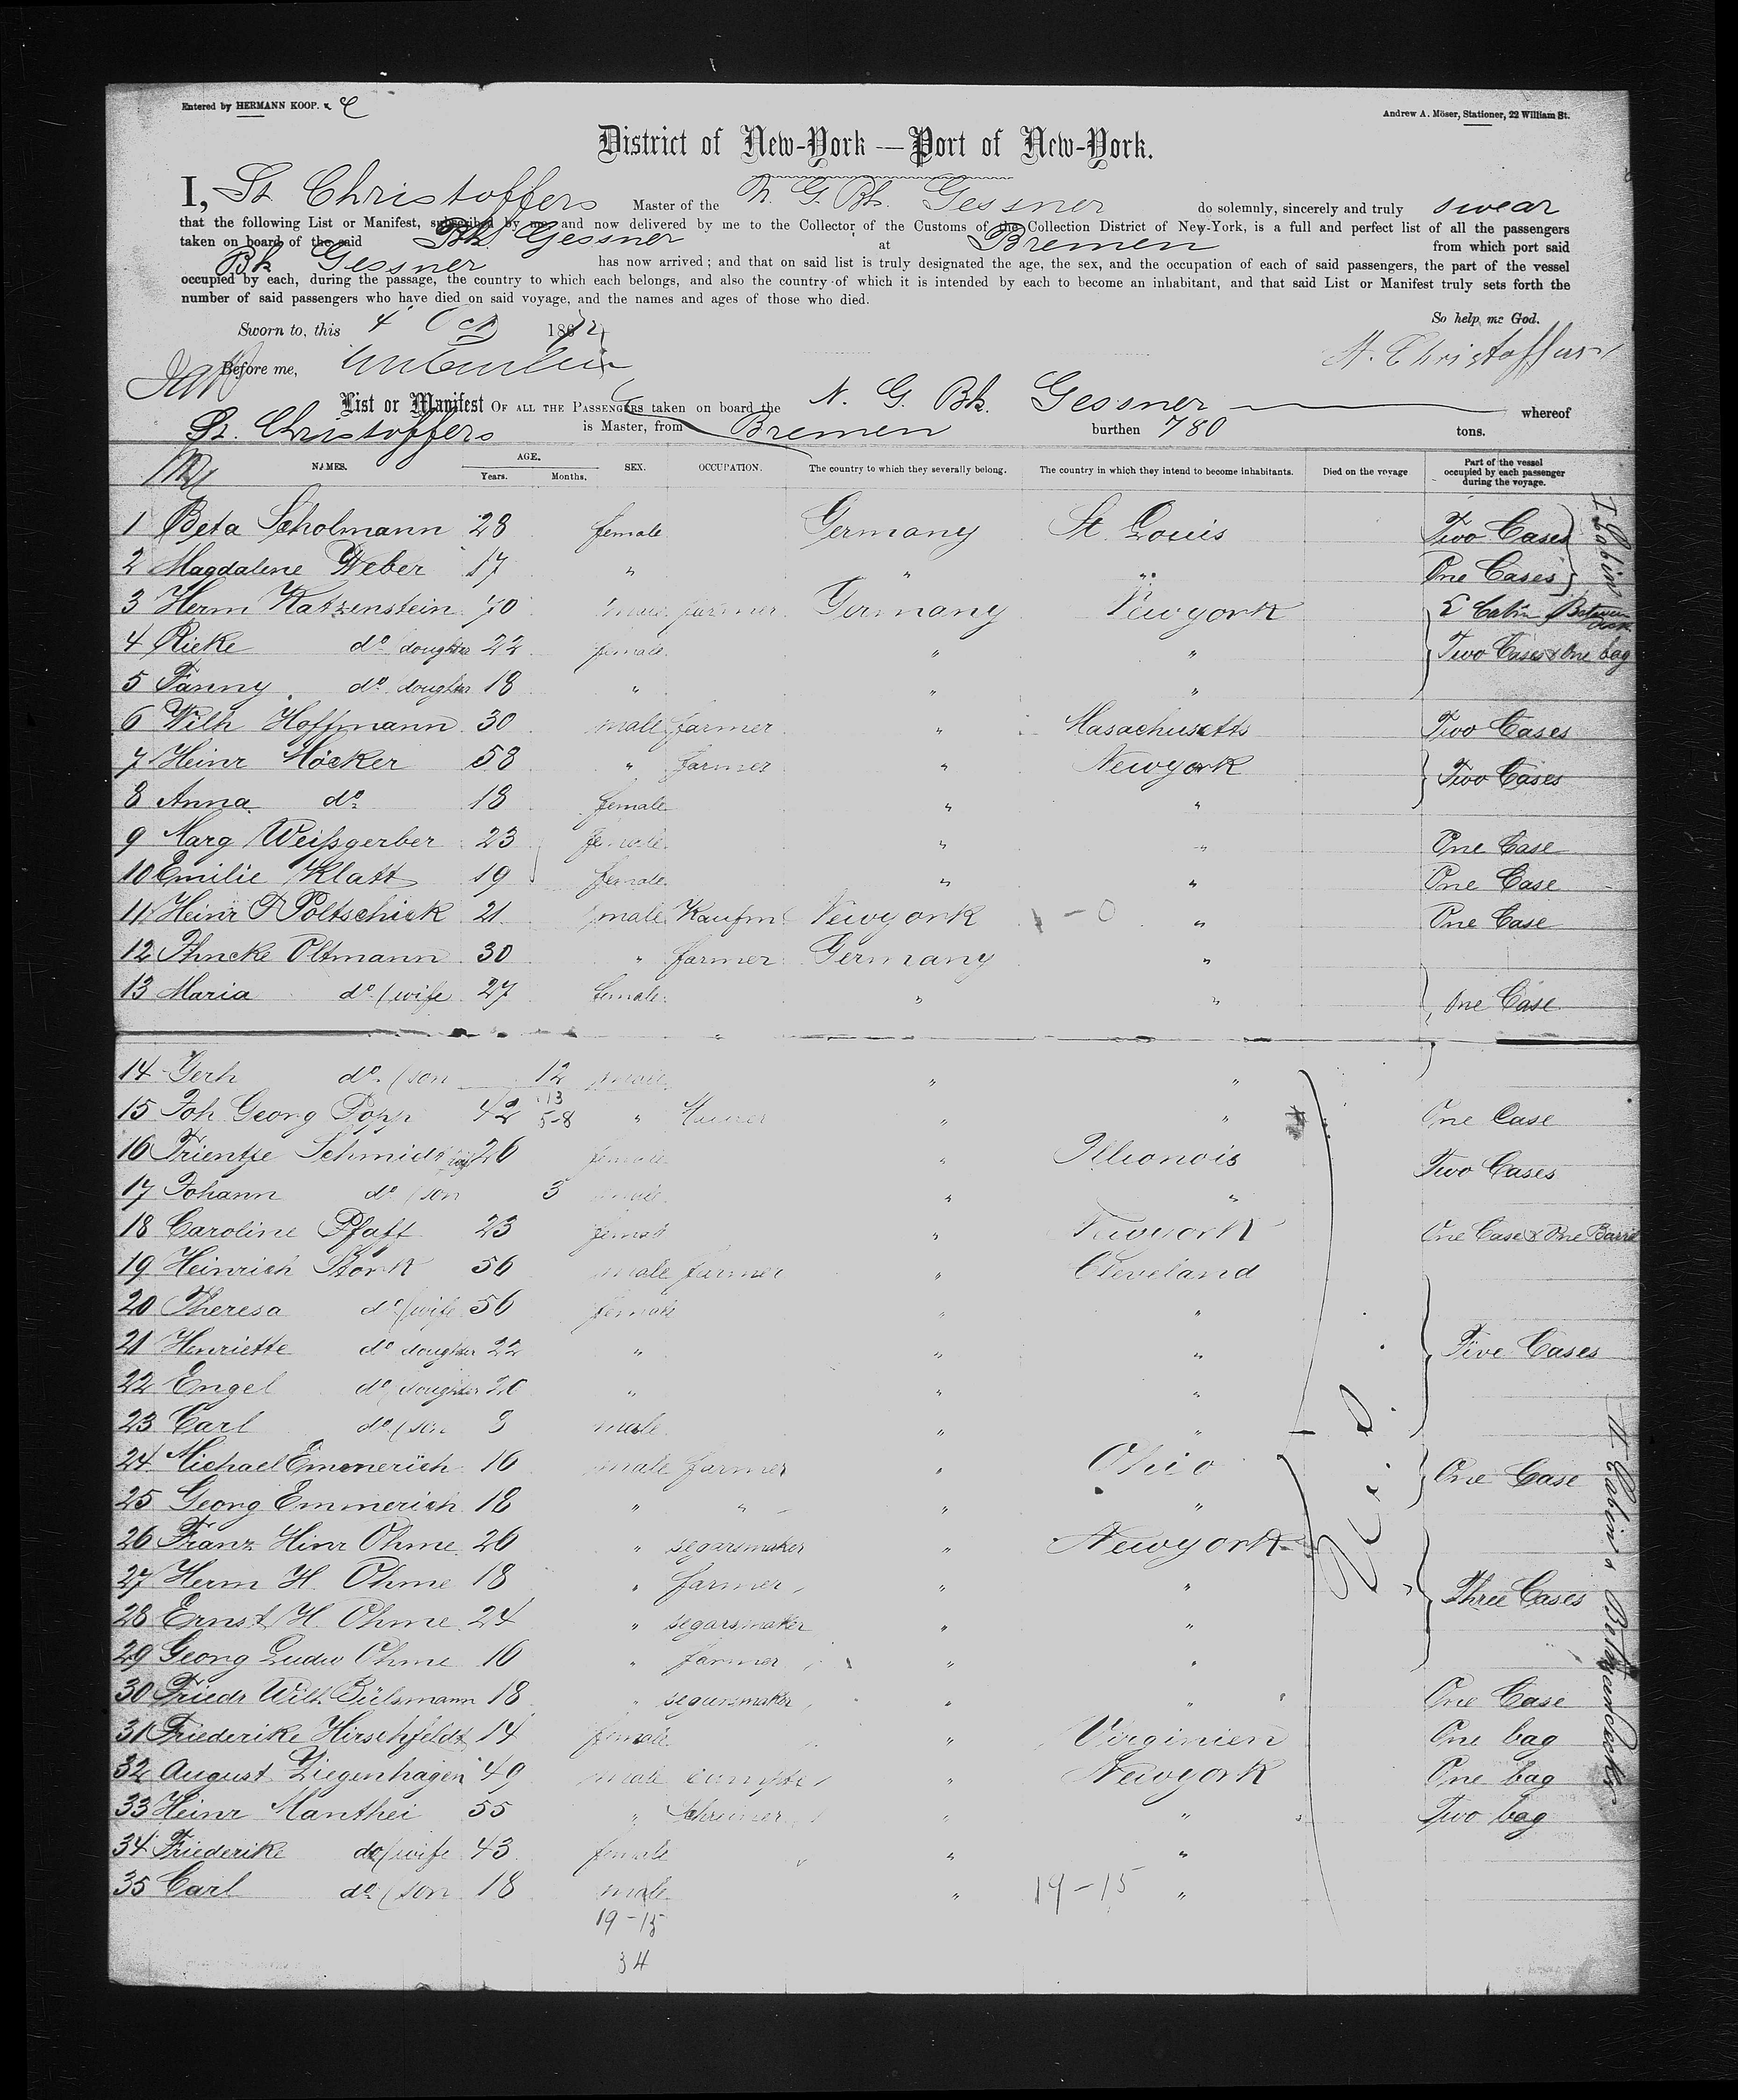 Entered by HERMANN KOOP.
Andrew A. Möser, Stationer, 22 William St.
District of New-York — Port of New-York.
I, St. Christoffers Master of the N. G. Bk. Gessner do solemnly, sincerely and truly swear
that the following List or Manifest, subscribed by me, and now delivered by me to the Collector of the Customs of the Collection District of New-York, is a full and perfect list of all the passengers
taken on board of the said Bk Gessner at Bremen from which port said
Bk Gessner has now arrived; and that on said list is truly designated the age, the sex, and the occupation of each of said passengers, the part of the vessel
occupied by each, during the passage, the country to which each belongs, and also the country of which it is intended by each to become an inhabitant, and that said List or Manifest truly sets forth the
number of said passengers who have died on said voyage, and the names and ages of those who died.
So help me God.
Sworn to, this 4 Oct 1872
St. Christoffers
Before me,
List or Manifest OF ALL THE PASSENGERS taken on board the N. G. Bk. Gessner whereof
St. Christoffers is Master, from Bremen burthen 780 tons.
NAMES. AGE. Years. Months. SEX. OCCUPATION. The country to which they severally belong. The country in which they intend to become inhabitants. Died on the voyage Part of the vessel occupied by each passenger during the voyage.
1 Beta Scholmann 28 female Germany St. Louis Two Cases
2 Magdalene Weber 17 " " " One Cases
3 Herm Katzenstein 70 male farmer Germany Newyork
4 Rieke do doughter 22 female " " Two Cases & One bag
5 Fanny do doughter 18 " " "
6 Wilh Hoffmann 30 male farmer " Masachusetts Two Cases
7 Heinr Höcker 58 " farmer " Newyork Two Cases
8 Anna do 18 female " "
9 Marg Weißgerber 23 female " " One Case
10 Emilie Klatt 19 female " " One Case
11 Heinr F Poltschick 21 male Kaufm Newyork - 0 " One Case
12 Ahncke Oltmann 30 " farmer Germany "
13 Maria do (wife 27 female " " One Case
14 Gerh do (son 12 male " "
15 Joh Georg Popp 42 " " " One Case
16 Trientje Schmidt 26 female " Illionois Two Cases
17 Johann do (son 3 male " "
18 Caroline Pfaff 23 female " Newyork One Case & One Barrel
19 Heinrich Stork 56 male farmer " Cleveland
20 Theresa do (wife 56 female " "
21 Henriette do doughter 22 " " " Five Cases
22 Engel do doughter 20 " " "
23 Carl do (son 9 male " "
24 Michael Emmerich 16 male farmer " Ohio One Case
25 Georg Emmerich 18 " " " "
26 Franz Hinr Ohme 26 " segarsmaker " Newyork
27 Herm H. Ohme 18 " farmer " " Three Cases
28 Ernst H. Ohme 24 " segarsmaker " "
29 Georg Ludw Ohme 16 " farmer " "
30 Friedr Wilh Bülsmann 18 " segarsmaker " " One Case
31 Friederike Hirschfeldt 14 female " Virginien One bag
32 August Ziegenhagen 49 male " Newyork One bag
33 Heinr Manthei 55 " Schreiner " " Two bag
34 Friederike do (wife 43 female " "
35 Carl do (son 18 male " 19-15 "
19-15
34